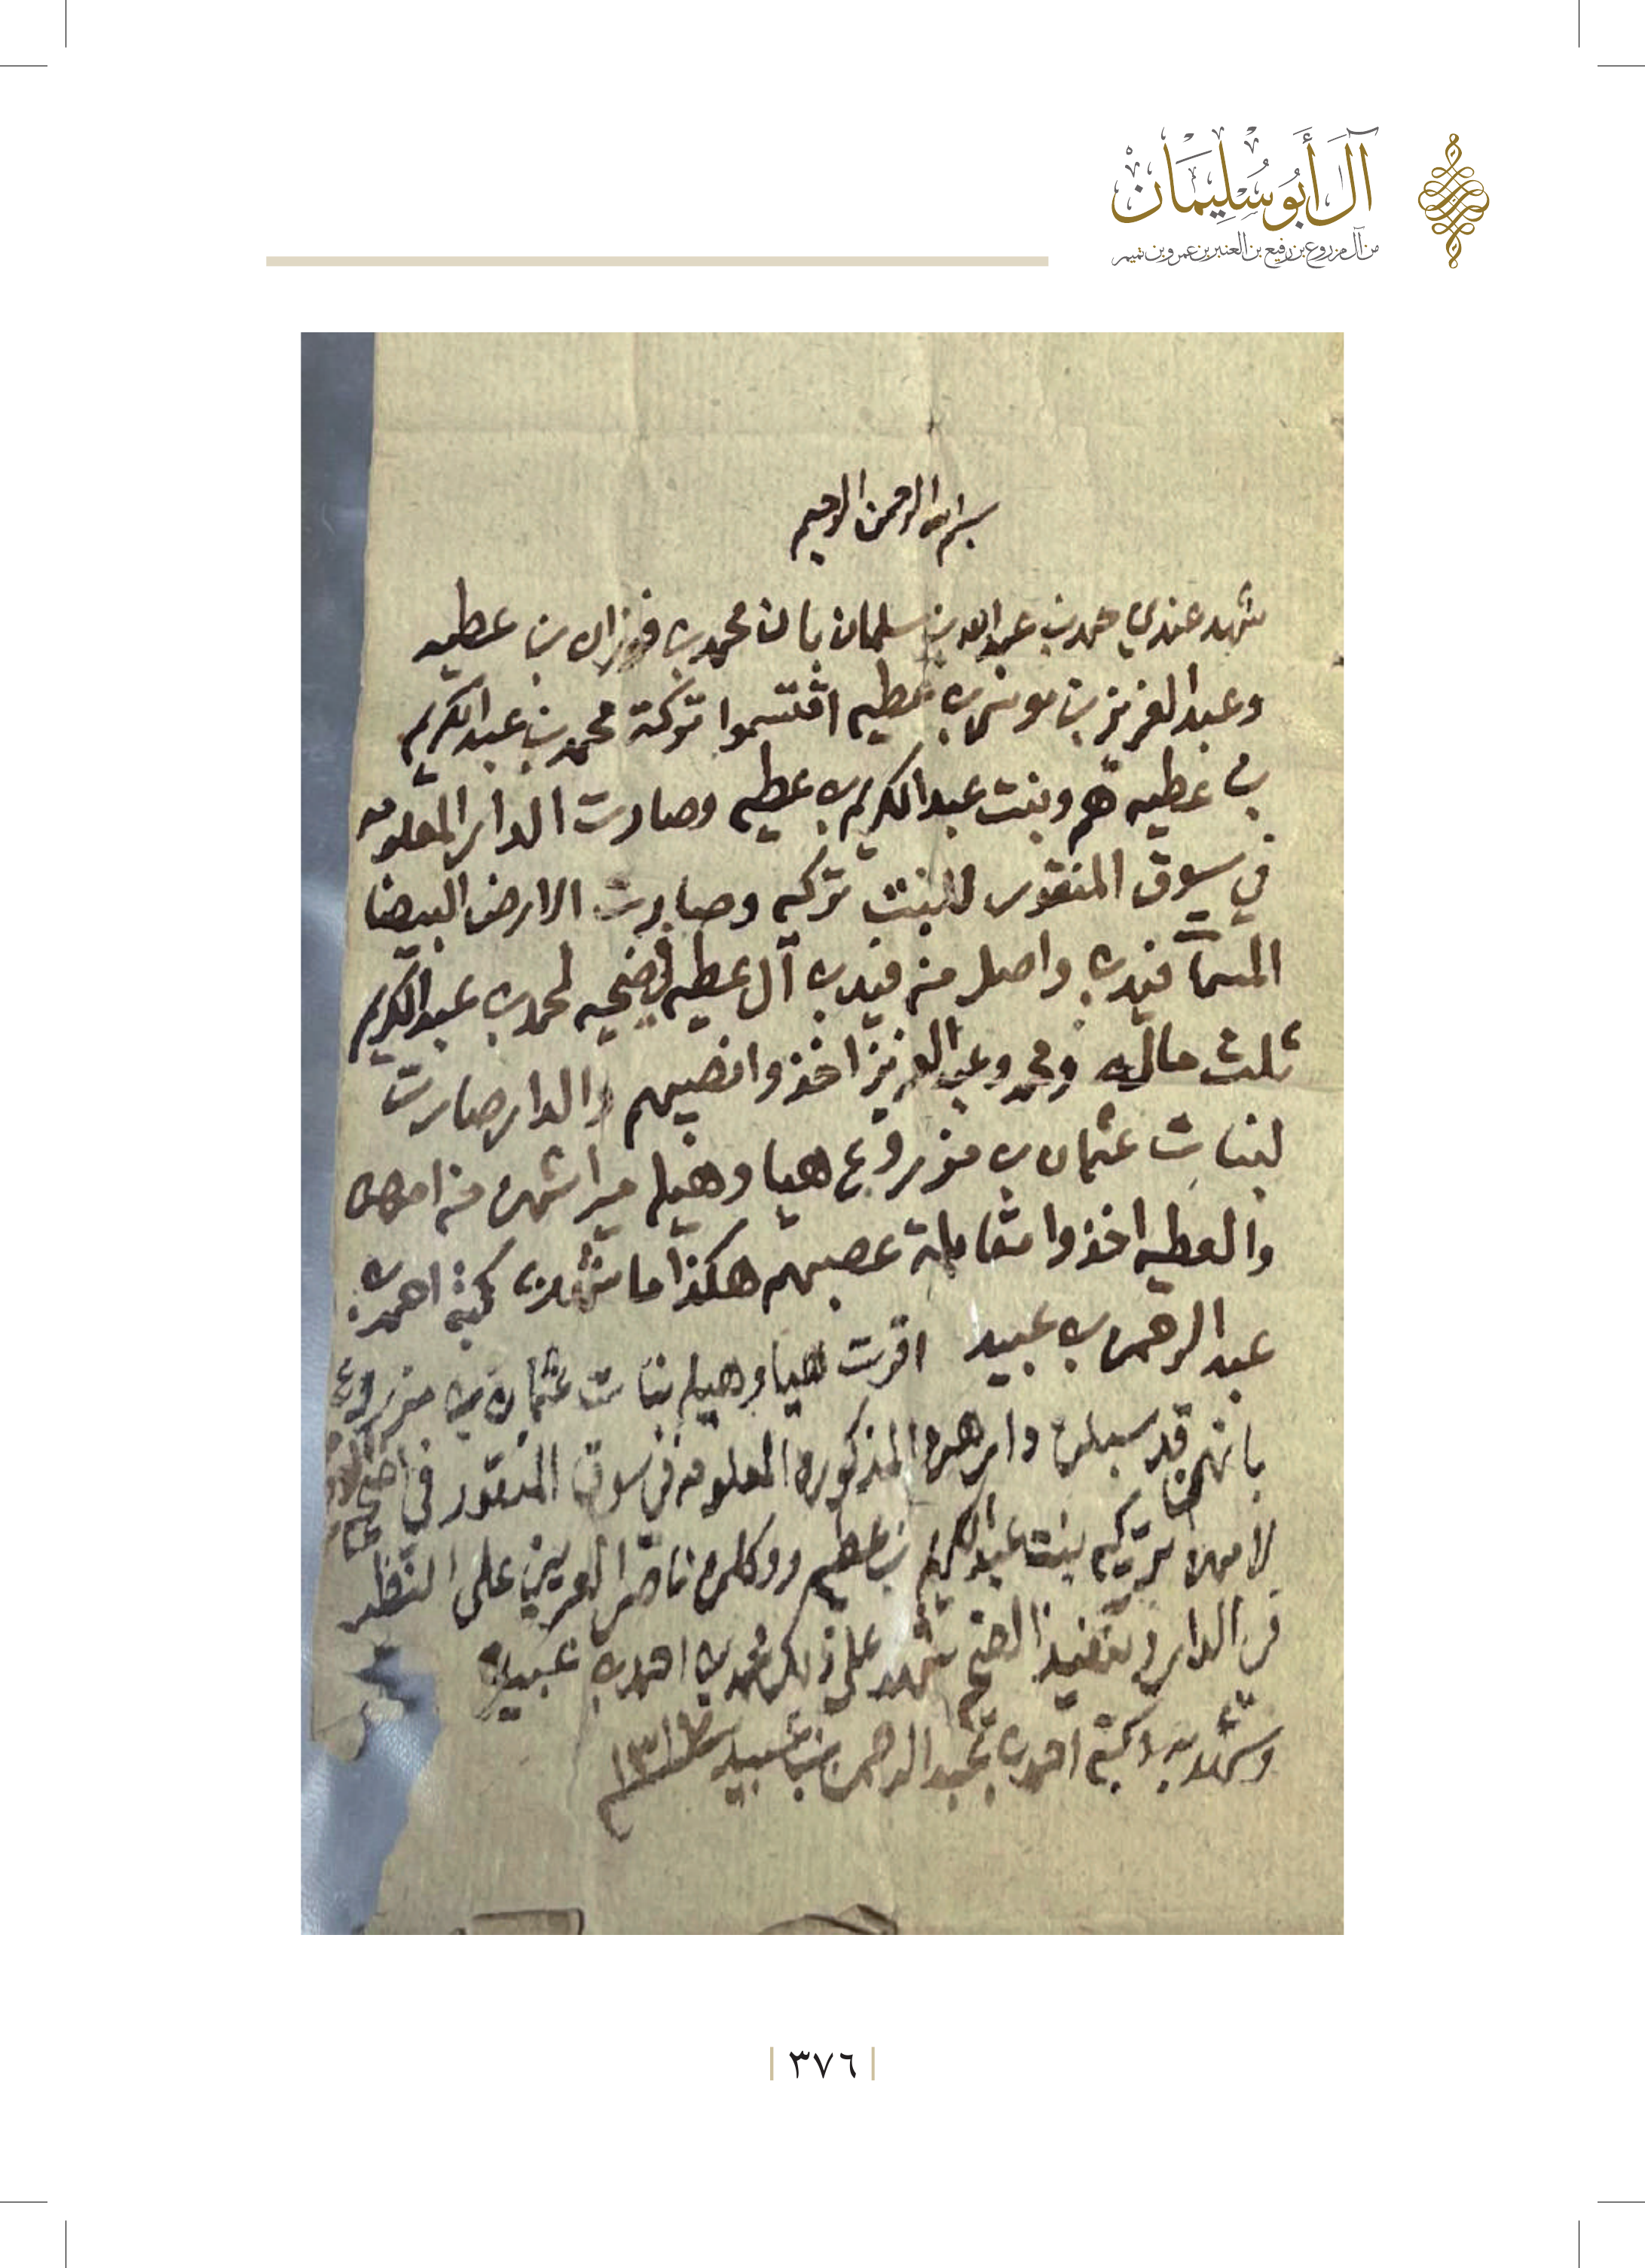 آل أبو سليمان
من آل مزروع بن رفيع بن العنبر بن عمرو بن تميم
بسم الله الرحمن الرحيم
شهد عندي حمد بن عبدالله بن سلمان بان محمد بن فوزان بن عطيه
وعبدالعزيز بن موسى بن عطيه اقتسموا تركة محمد بن عبدالكريم
بن عطيه هم وبنت عبدالكريم بن عطيه وصارت الدار المعلومه
في سوق المنقور للبنت تركيه وصارت الارض البيضا
المسمات فيد واصل من فيد آل عطيه في ضحيه لمحمد بن عبدالكريم
ثلث ماله ومحمد وعبدالعزيز اخذوا نصيبهم والدار صارت
لبنات عثمان بن مزروع هيا وهيله ميراثهن من امهن
والعطيه اخذوا مقابلة عصبهم هكذا ما شهد به كتبه احمد بن
عبدالرحمن بن عبيد اقرت هيا وهيله بنات عثمان بن مزروع
بانهن قد سبلن دارهن المذكوره المعلومه في سوق المنقور في
لامهن تركيه بنت عبدالكريم بن عطيه ووكلن ناصر العريني على النظر
في الدار وتنفيذ الضحي شهد على ذلك محمد بن احمد بن عبيد
وشهد به وكتبه احمد بن عبدالرحمن بن عبيد
٣٧٦